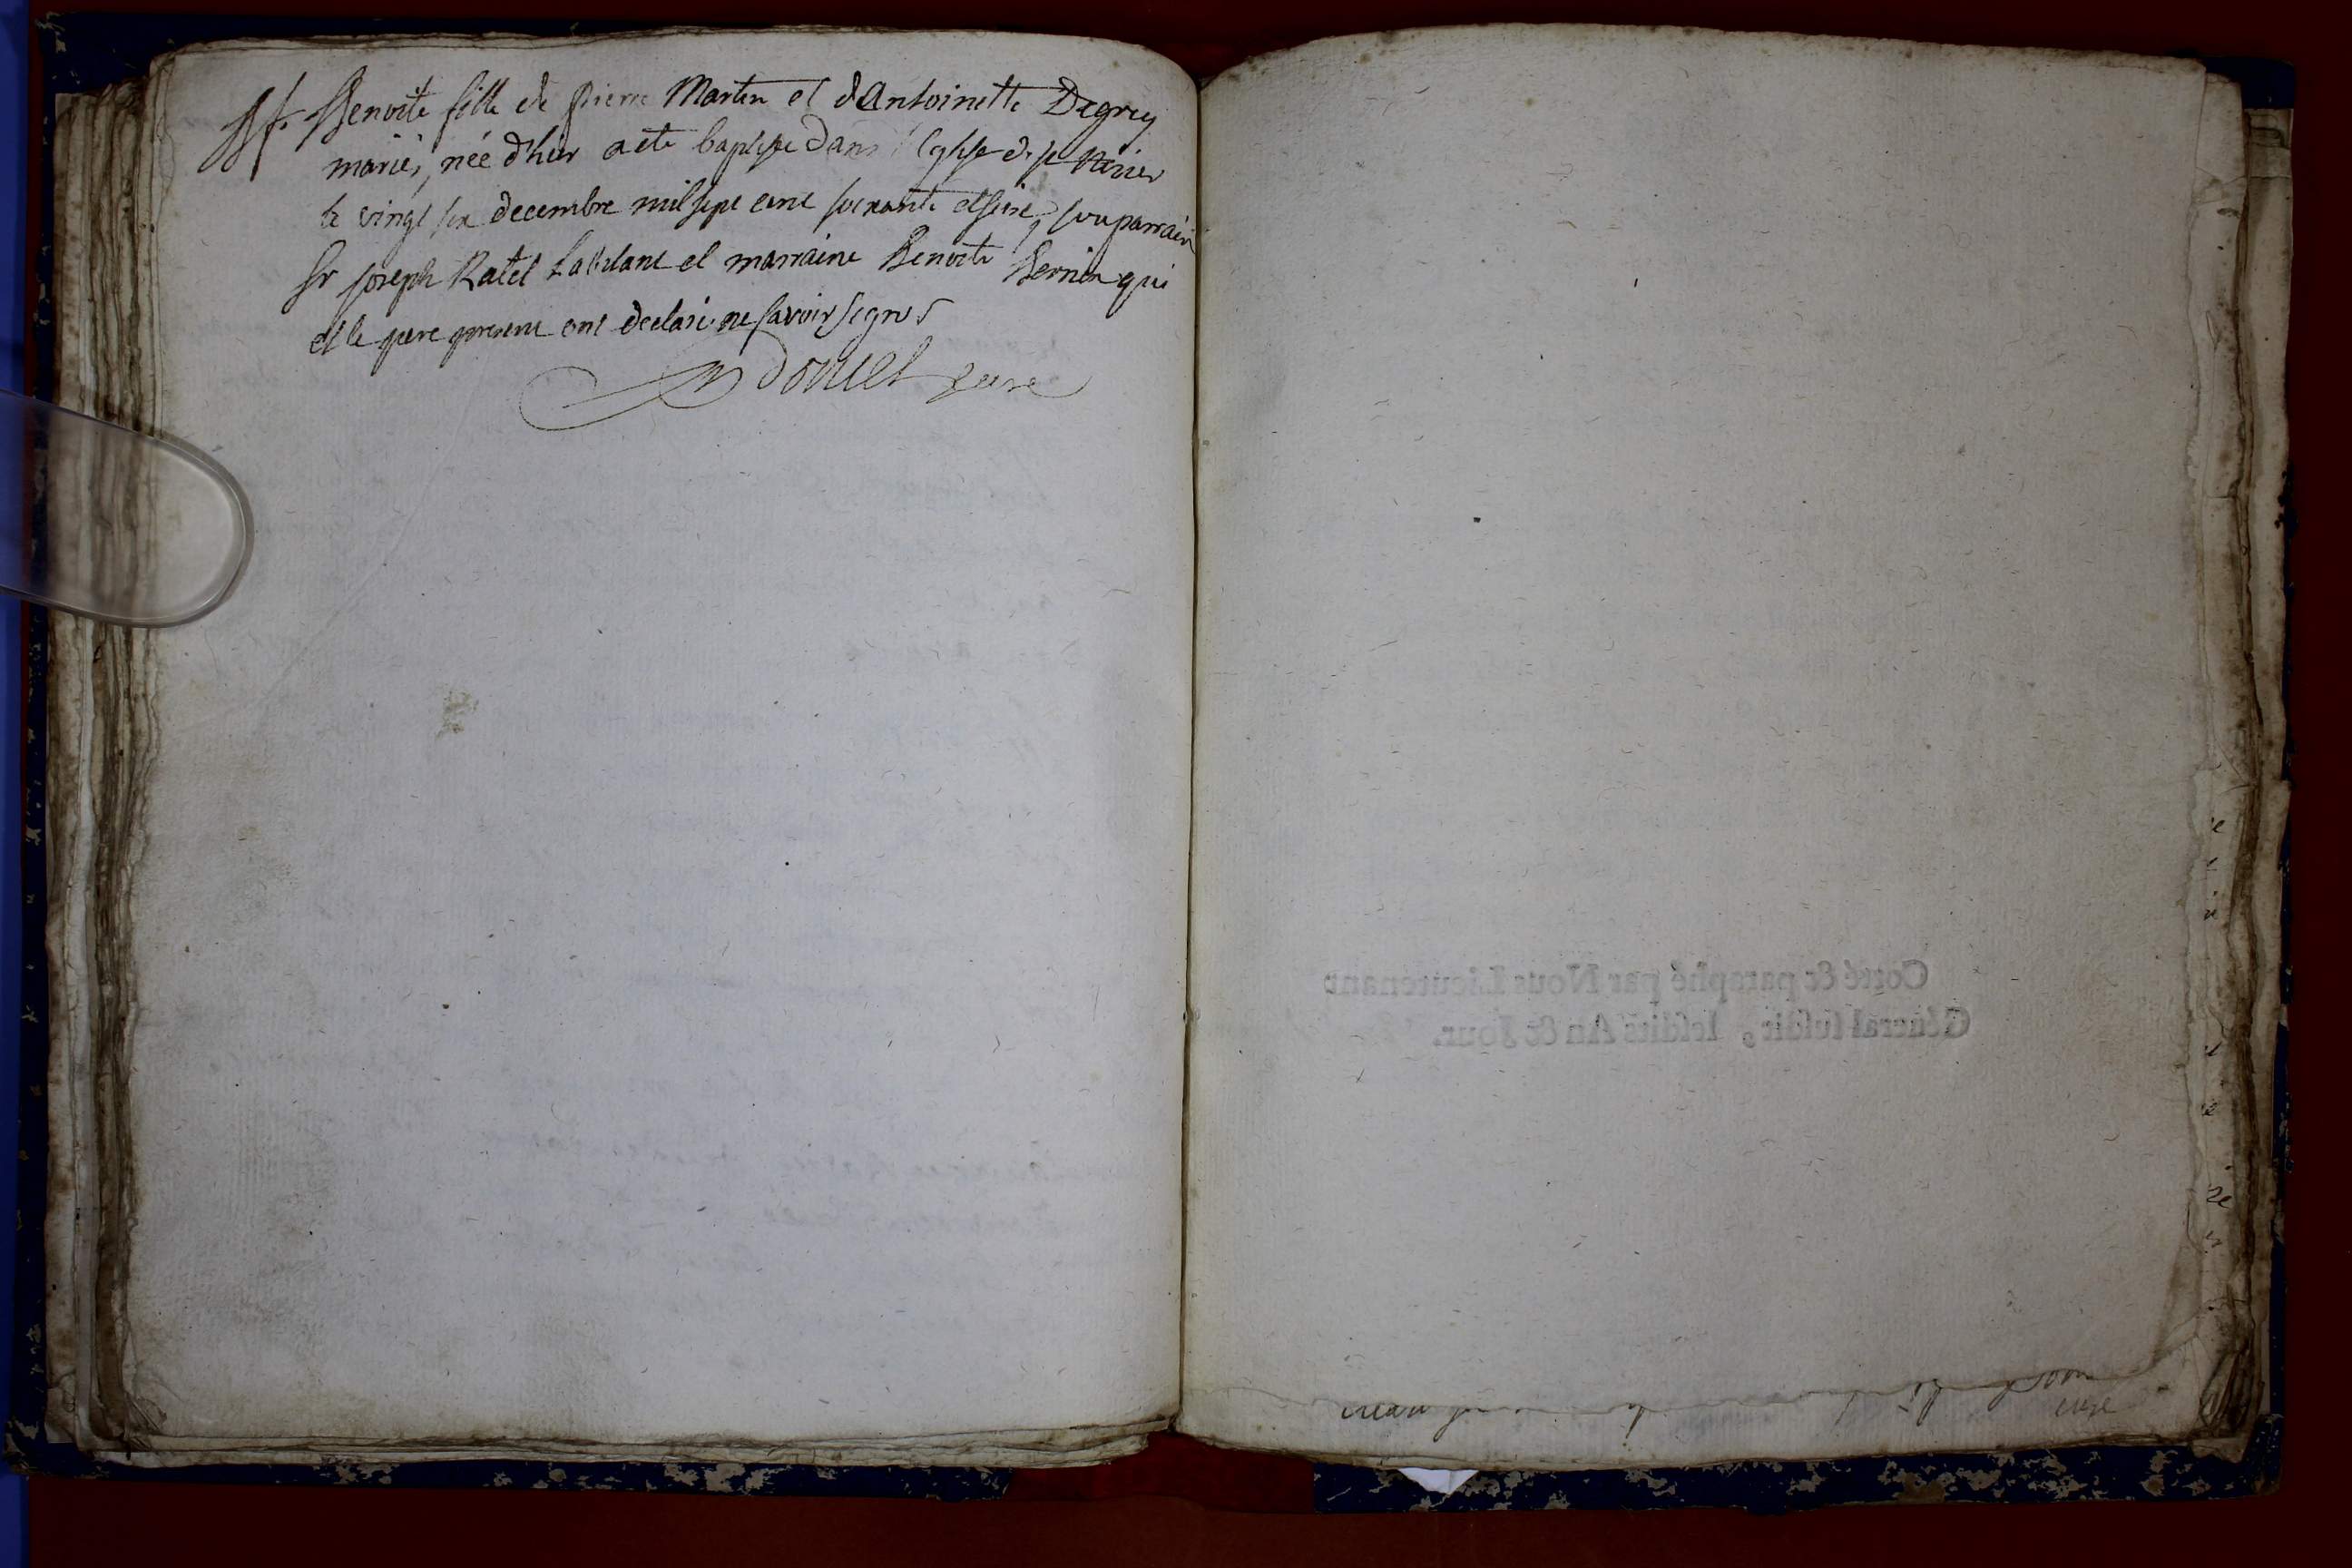 Bt. Benoite fille de pierre Martin et dantoinette Degrey
mariés, née d'hier a ete baptisée dans l'eglise de st
le vingt six decembre mil sept cent soixante et seize, son parrain
Sr joseph Ratel et marraine Benoite Bernin qui
et le pere present ont declaré ne savoir signer
Donnet curé
Cotté & paraphé par Nous Lieutenant
Général susdit, lesdits An & Jour.
curé